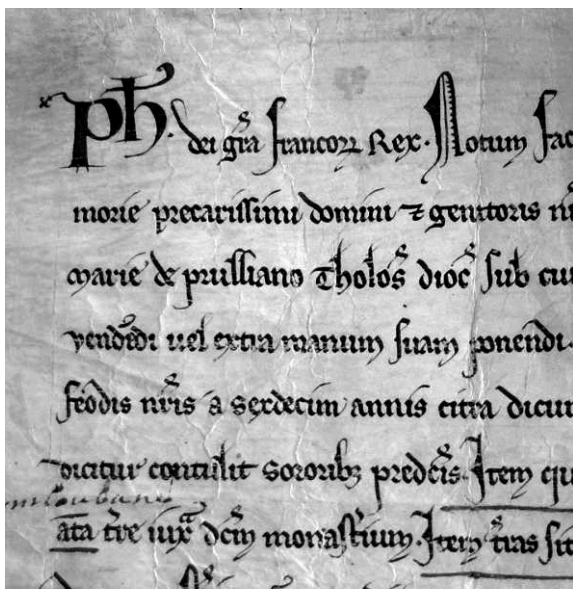 Ph. dei gr̃a francoꝝ Rex. Notum fac
morie precarissimi domini ⁊ genitoris nr̃i
marie de prulliano Tholos̃ dioc̃ sub cui
vendẽdi uel extra manum suam ponendi.
feodis nr̃is a sexdecim annis citra dicun
dicitur contulit sororibꝫ predc̃is. Item qu
ata tr̃e iuxᵃ dc̃m monast̃ium. Item t̃ras sit